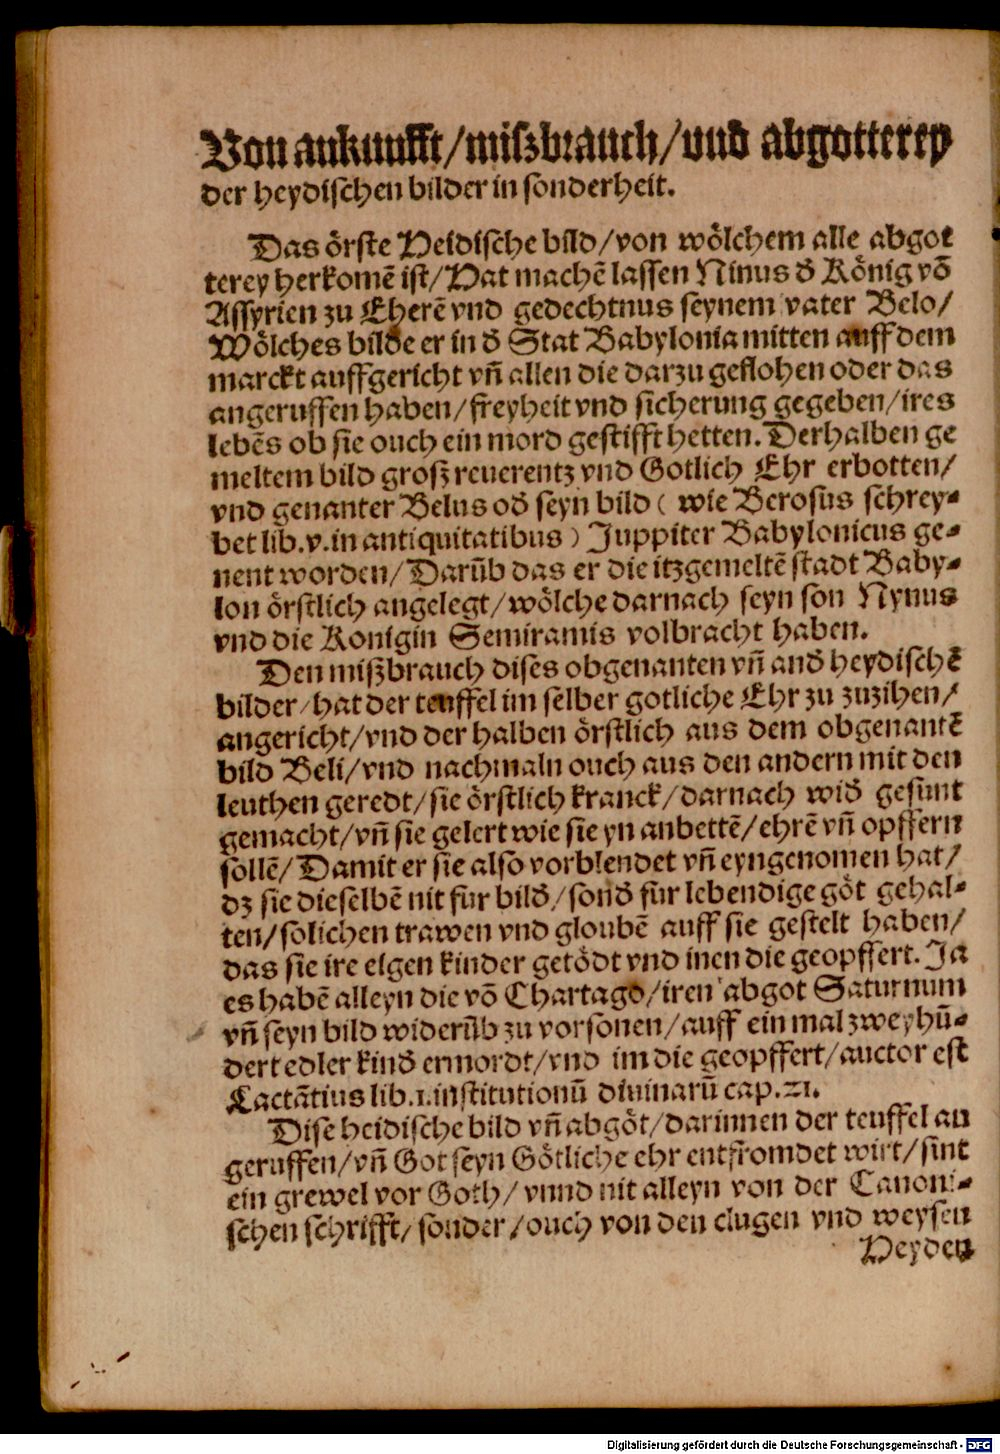 Von ankunfft/miſzbrauch/vnd abgotterey
der heydiſchen bilder in ſonderheit.
Das örſte Heidiſche bild/von wölchem alle abgot
terey herkomē iſt/Hat machē laſſen Ninus đ König vō
Aſſyrien zu Eherē vnd gedechtnus ſeynem vater Belo/
Wölches bilde er in đ Stat Babylonia mitten auff dem
marckt auffgericht vn̄ allen die darzu geflohen oder das
angeruffen haben/freyheit vnd ſicherung gegeben/ires
lebēs ob ſie ouch ein mord geſtifft hetten. Derhalben ge
meltem bild groſz reuerentz vnd Gotlich Ehr erbotten/
vnd genanter Belus ođ ſeyn bild ( wie Beroſus ſchrey⸗
bet lib.v.in antiquitatibus ) Juppiter Babylonicus ge⸗
nent worden/Darūb das er die itzgemeltē ſtadt Baby⸗
lon örſtlich angelegt/wölche darnach ſeyn ſon Nynus
vnd die Konigin Semiramis volbracht haben.
Den miſzbrauch diſes obgenanten vn̄ anđ heydiſchē
bilder/hat der teuffel im ſelber gotliche Ehr zu zuzihen/
angericht/vnd der halben örſtlich aus dem obgenantē
bild Beli/vnd nachmaln ouch aus den andern mit den
leuthen geredt/ſie örſtlich kranck/darnach wiđ geſunt
gemacht/vn̄ ſie gelert wie ſie yn anbettē/ehrē vn̄ opffern
ſollē/Damit er ſie alſo vorblendet vn̄ eyngenomen hat/
dz ſie dieſelbē nit für bilđ/ſonđ für lebendige göt gehal⸗
ten/ſolichen trawen vnd gloubē auff ſie geſtelt haben/
das ſie ire eigen kinder getödt vnd inen die geopffert. Ja
es habē alleyn die vō Chartago/iren abgot Saturnum
vn̄ ſeyn bild widerūb zu vorſonen/auff ein mal zweyhū⸗
dert edler kinđ ermordt/vnd im die geopffert/auctor eſt
Lactātius lib.1.inſtitutionū diuinarū cap.21.
Diſe heidiſche bild vn̄ abgöt/darinnen der teuffel an
geruffen/vn̄ Got ſeyn Götliche ehr entfromdet wirt/ſint
ein grewel vor Goth/vnnd nit alleyn von der Canoni⸗
ſchen ſchrifft/ſonder/ouch von den clugen vnd weyſen
Heyden
Digitalisierung gefördert durch die Deutsche Forschungsgemeinschaft - DFG